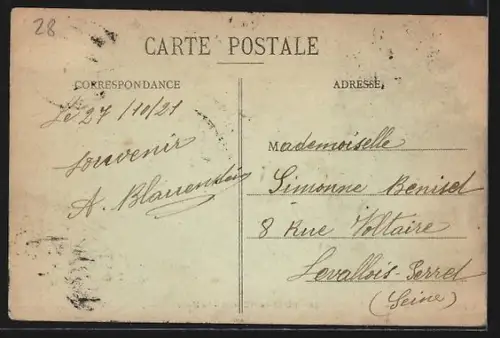 28
CARTE POSTALE
CORRESPONDANCE
ADRESSE
Le 27/10/21
Souvenir
A.
Mademoiselle
Simonne Benisel
8 Rue Voltaire
Levallois-Perret
(Seine)